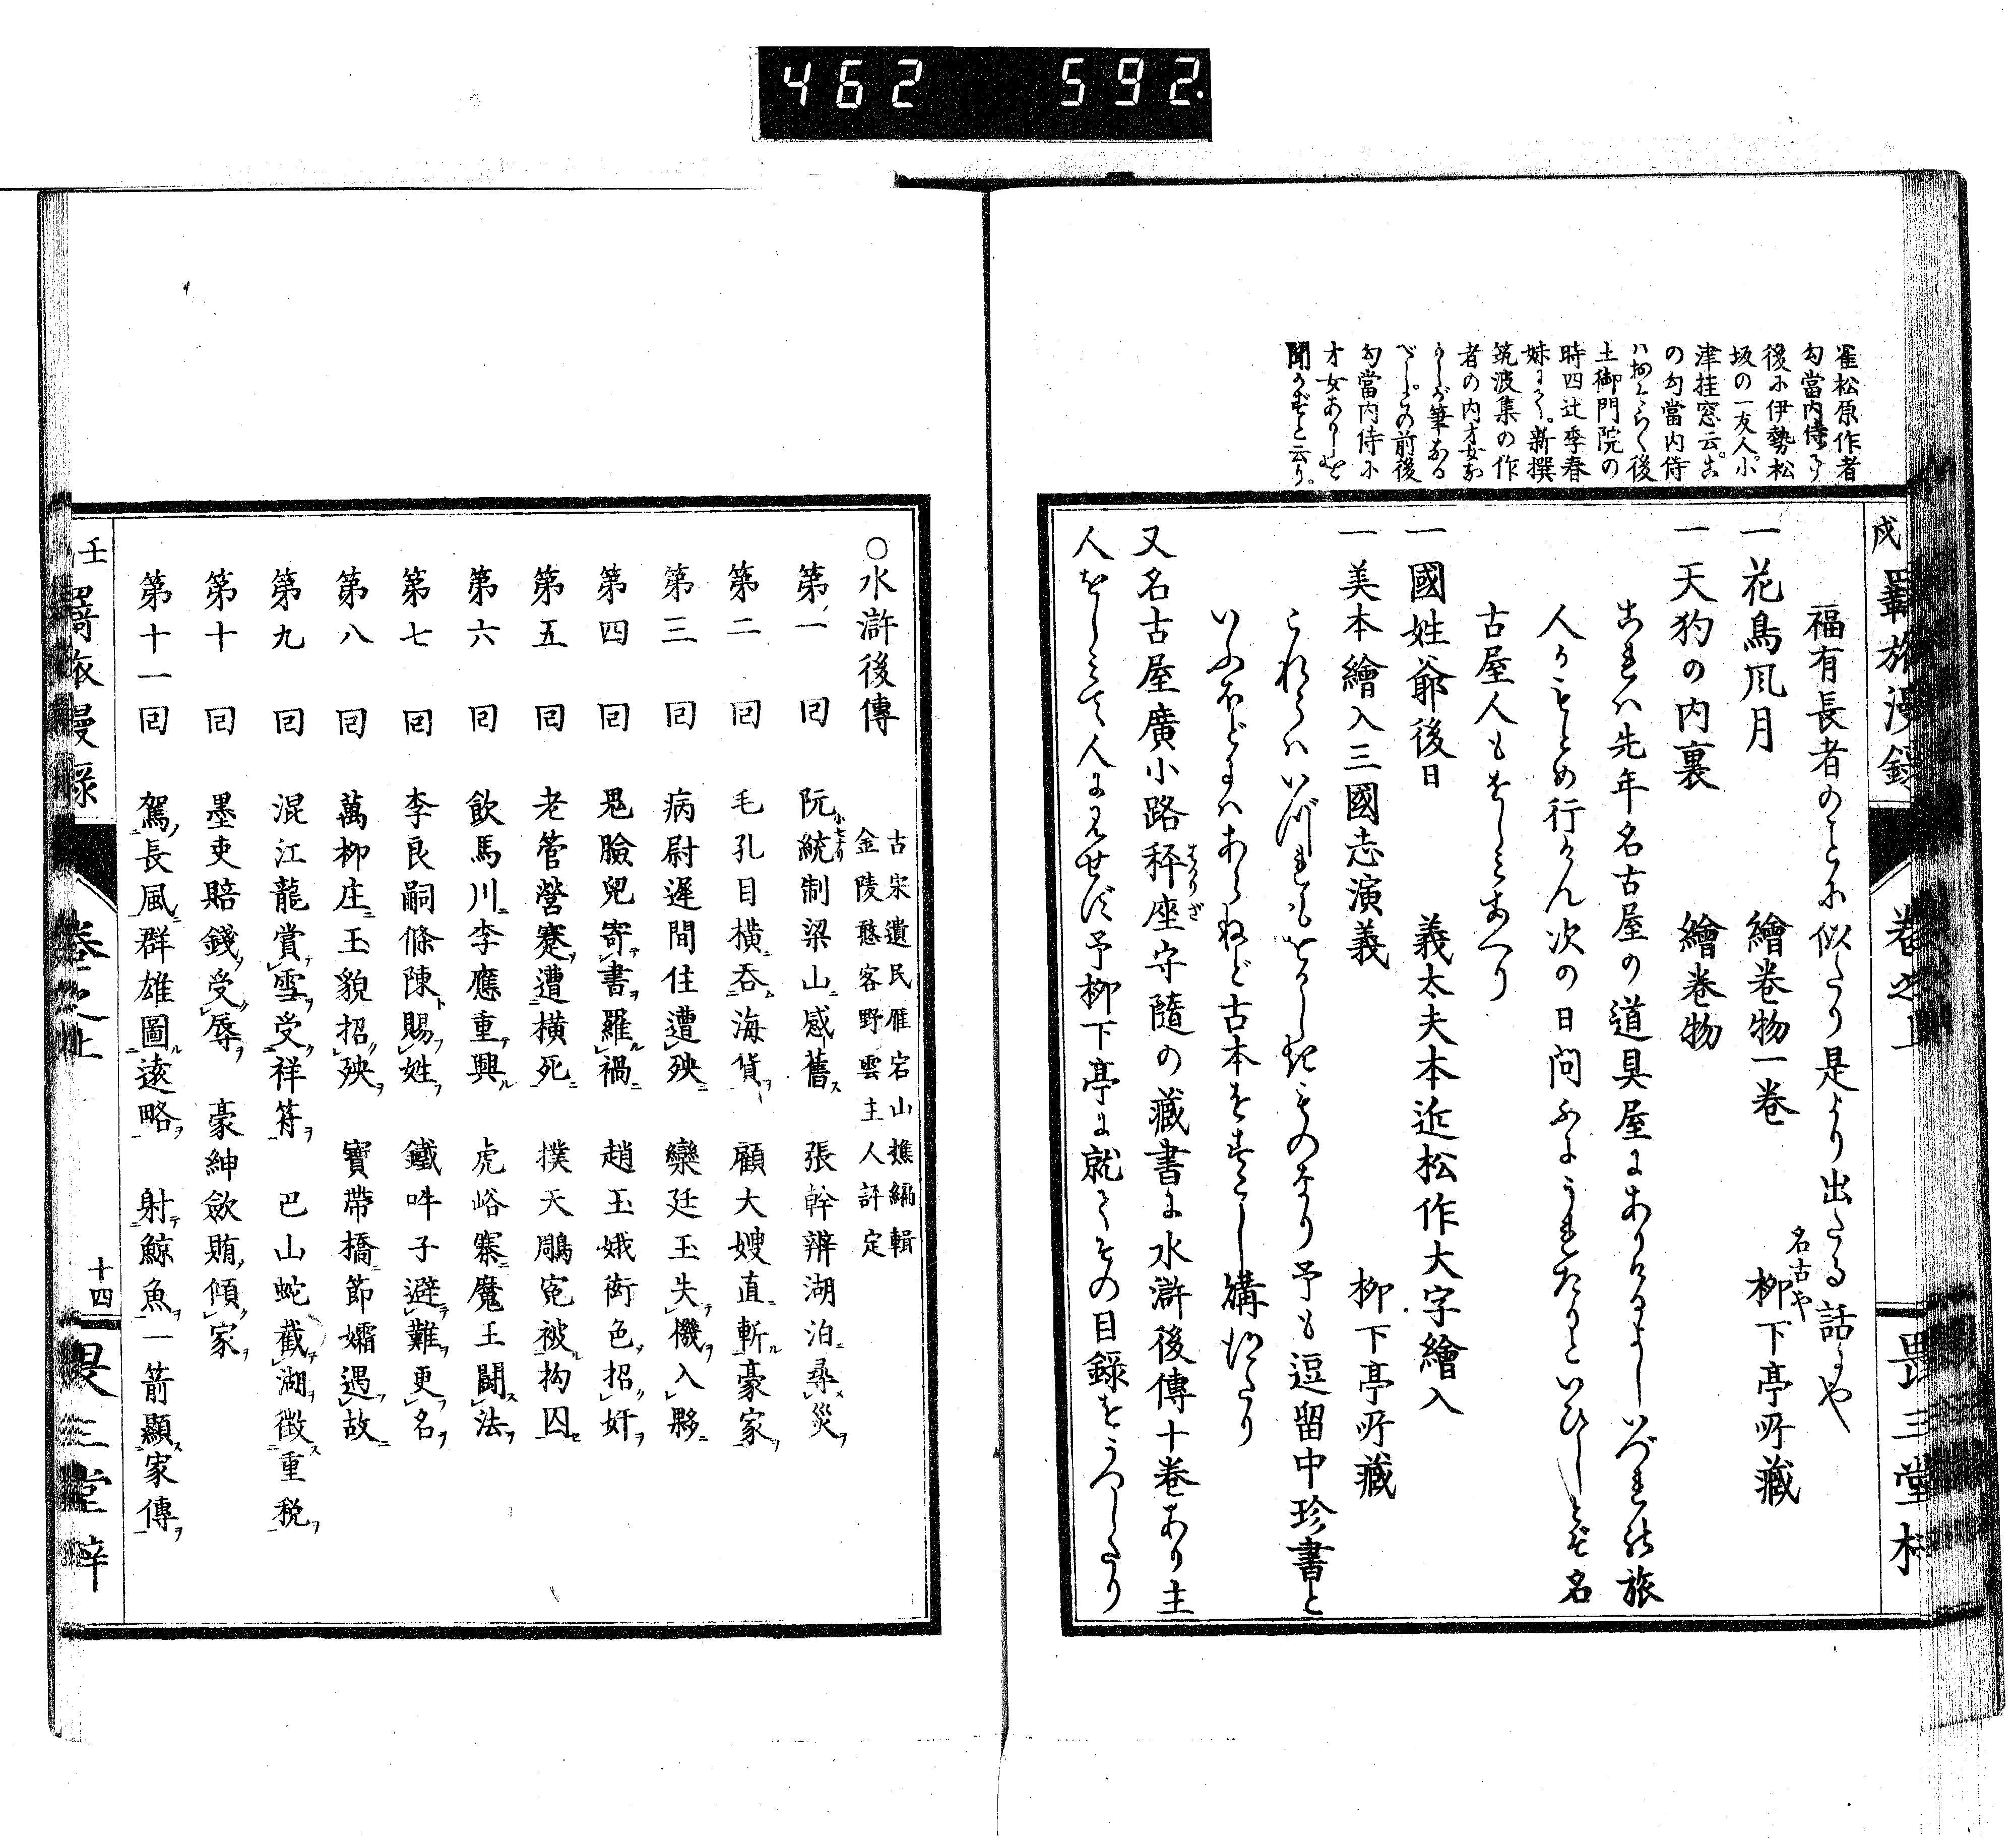 462 592.
雀松原作者
勾當内侍
後に伊勢松
坂の一友人小
津桂窓云
の勾當内侍
後
土御門院の
時四辻季春
妹にて新撰
筑波集の作
者の内才女
筆
べし前後
勾當内侍に
才女ありしを
聞かずと云り
戌 羇旅漫録 卷之上 畏三堂梓
福有長者のことに似たり是より出たる話にや
一花鳥風月 繪卷物一卷 名古や 柳下亭所藏
一天狗の内裏 繪卷物
これは先年名古屋の道具屋にありけるよしいづれの旅
人かもとめ行けん次の日問ふにうれたりといひしとぞ名
古屋人もをしみあへり
一國姓爺後日 義太夫本近松作大字繪入
一美本繪入三國志演義 柳下亭所藏
これらはいづれもをかしきものなり予も逗留中珍書と
いふほどにはあらねど古本をすこし購得たり
又名古屋廣小路秤座守隨の藏書に水滸後傳十卷あり主
人をしみて人に見せず予柳下亭に就てその目録をうつしたり
○水滸後傳 古宋遺民雁宕山樵編輯
金陵憨客野雲主人評定
第一回 阮統制梁山感舊 張幹辨湖泊尋災
第二回 毛孔目横吞海貨 顧大嫂直斬豪家
第三回 病尉遲間住遭殃 欒廷玉失機入夥
第四回 鬼臉兒寄書羅禍 趙玉娥衒色招奸
第五回 老管營蹇遭横死 撲天鵰冤被拘囚
第六回 飲馬川李應重興 虎峪寨魔王鬪法
第七回 李良嗣條陳賜姓 鐵叫子避難更名
第八回 萬柳庄玉貌招殃 寶帶橋節孀遇故
第九回 混江龍賞雪受祥符 巴山蛇截湖徵重税
第十回 墨吏賠錢受辱 豪紳歛賄傾家
第十一回 駕長風群雄圖遠略 射鯨魚一箭顯家傳
壬 羇旅漫録 卷之上 十四 畏三堂梓